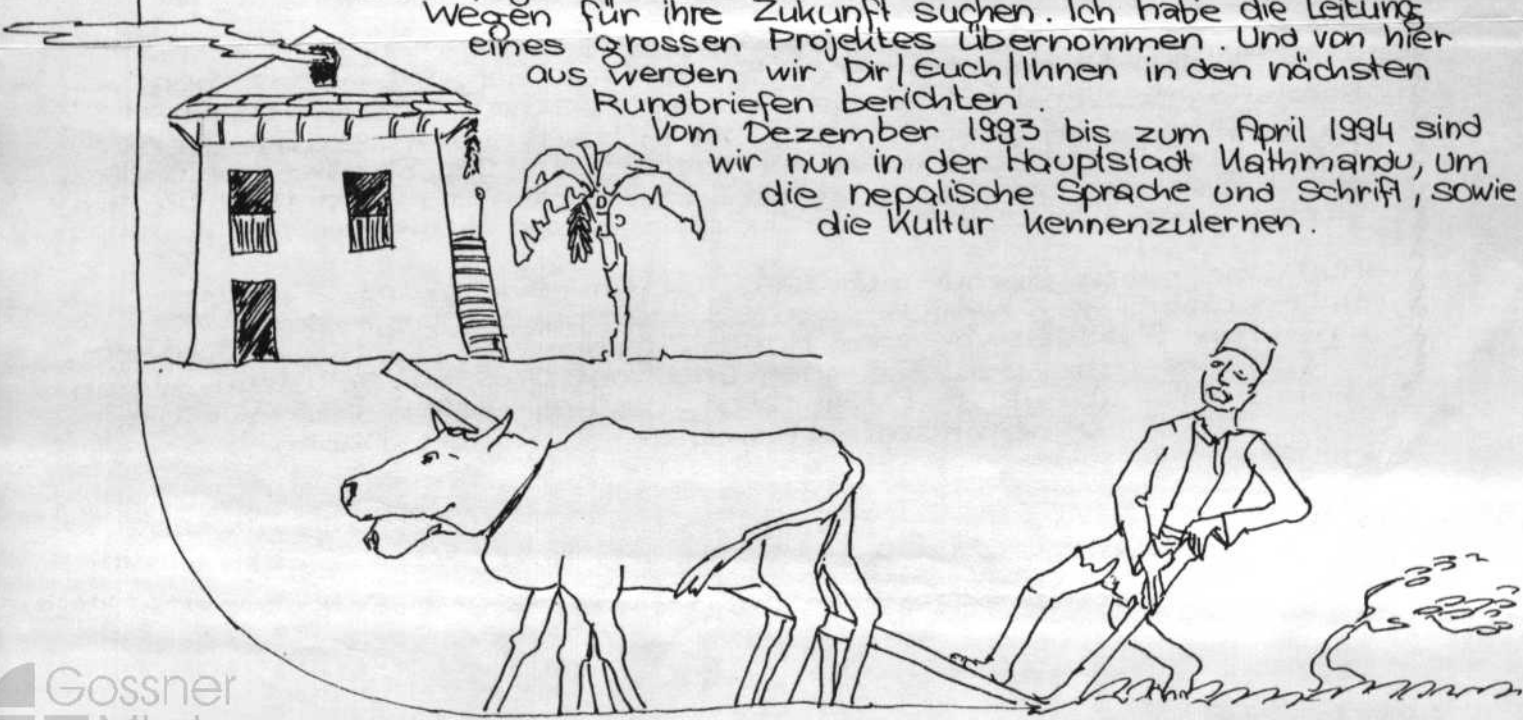 Wegen für ihre Zukunft suchen. Ich habe die Leitung
eines grossen Projektes übernommen. Und von hier
aus werden wir Dir/Euch/Ihnen in den nächsten
Rundbriefen berichten.
Vom Dezember 1993 bis zum April 1994 sind
wir nun in der Hauptstadt Kathmandu, um
die nepalische Sprache und Schrift, sowie
die Kultur kennenzulernen.
Gossner